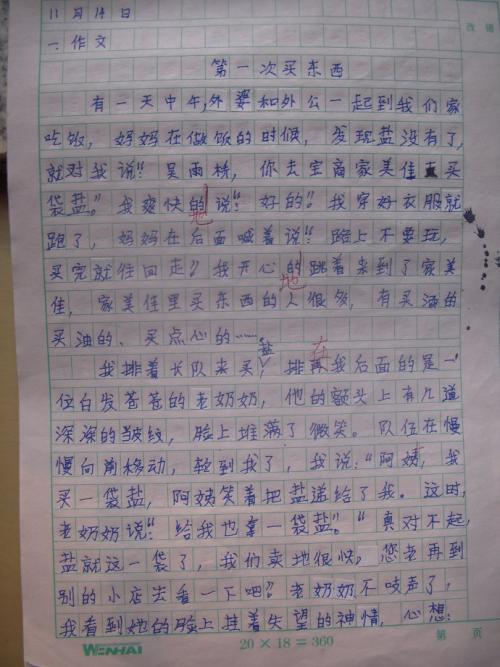 11月14日
改错
一.作文
第一次买东西
有一天中午,外婆和外公一起到我们家
吃饭,妈妈在做饭的时候,发现盐没有了,
就对我说:“吴雨桃,你去宝商家美佳买
袋盐。”我爽快的说:“好的!”我穿好衣服就
地
跑了,妈妈在后面喊着说:“路上不要玩,
买完就往回走。”我开心的跳着来到了家美
地
佳,家美佳里买东西的人很多,有买酒的
买油的、买点心的……
我排着长队来买盐,排再我后面的是一
在
位白发苍苍的老奶奶,他的额头上有几道
深深的皱纹,脸上堆满了微笑。队伍在慢
慢向前移动,轮到我了,我说:“阿姨,我
买一袋盐,阿姨笑着把盐递给了我。这时,
老奶奶说:“给我也拿一袋盐。”“真对不起,
盐就这一袋了,我们卖地很快,您老再到
别的小店去看一下吧?老奶奶不吱声了,
我看到她的脸上挂着失望的神情,心想:
WENHAI
20×18=360
第 页